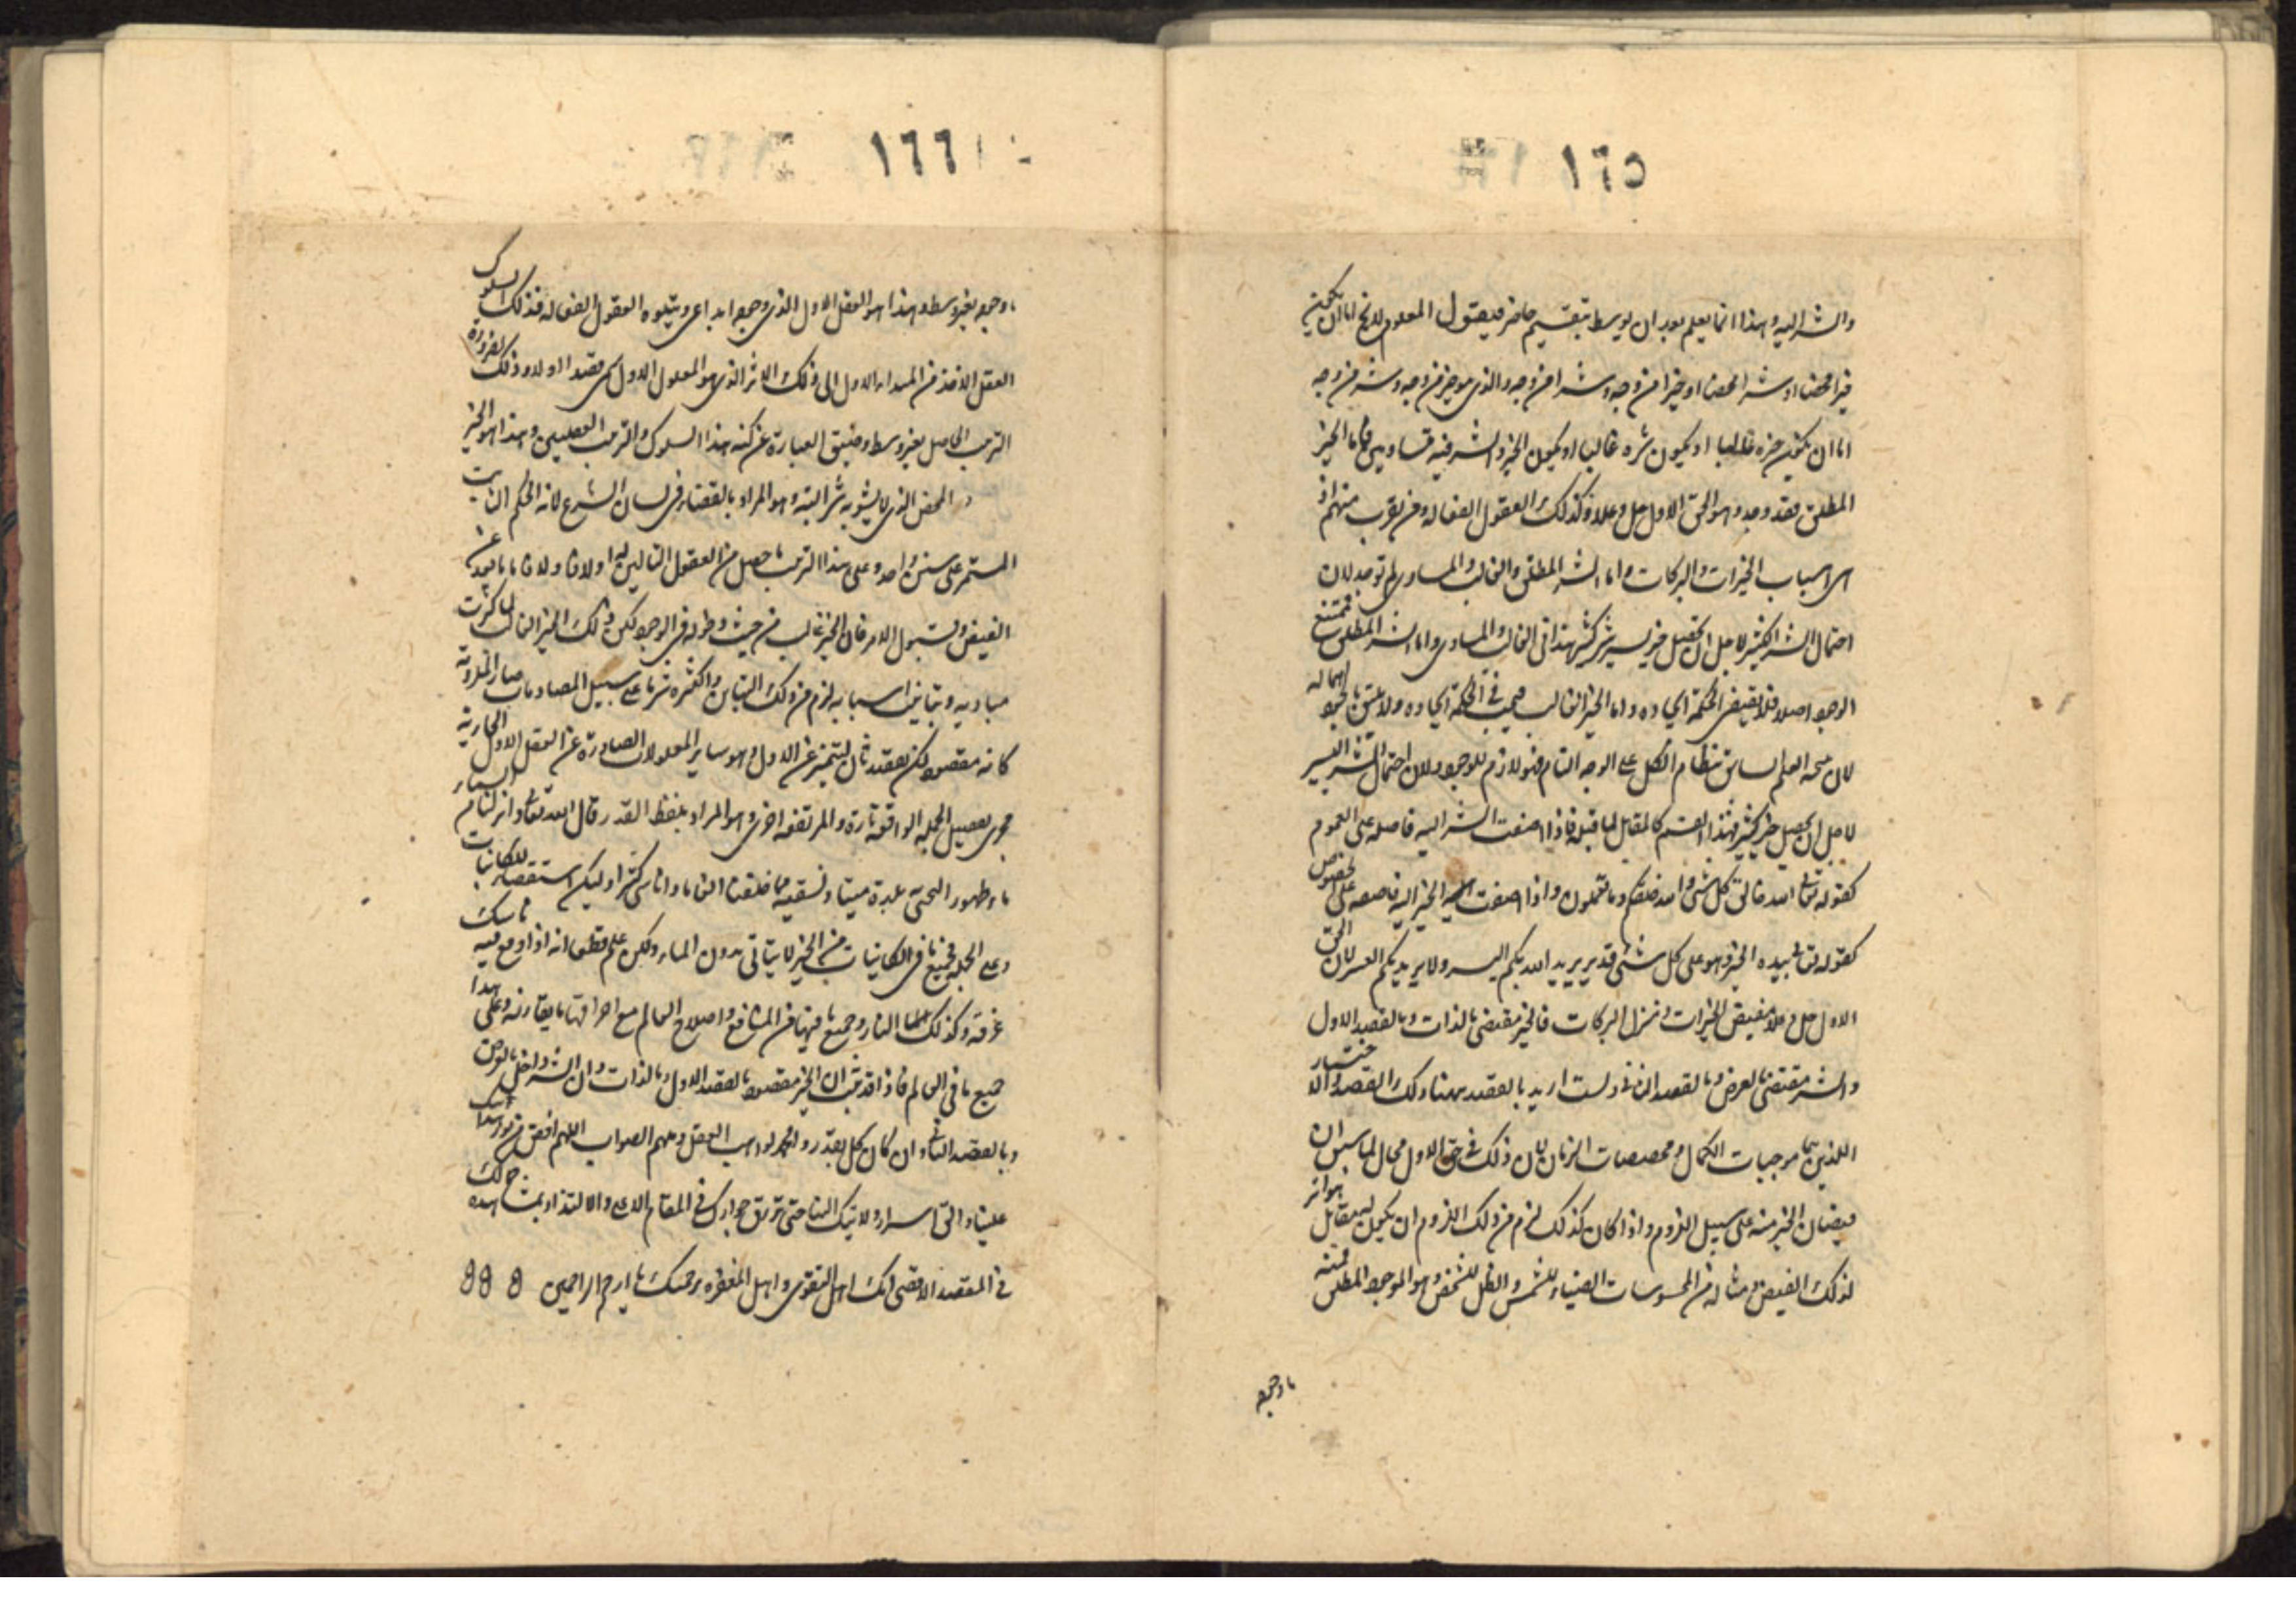 ١٦٥
والشر اليه وهذا انما يعلم بعد ان يوسط بتقسيم حاضر فيقول المعلوم اما ان يكون
خيرا محضا او شرا محضا او خيرا من وجه وشرا من وجه والذي هو خير من وجه وشر من وجه
اما ان يكون خيره غالبا او يكون شره غالبا او يكون الخير والشر فيه متساويين فاما الخير
المطلق فقد وجد وهو الحق الاول جل وعلا وكذلك العقول الفعاله ومن يقرب منهم اذ
هي اسباب الخيرات والبركات واما الشر المطلق والغالب والمساوي لم توجد لان
احتمال الشر الكثير لاجل ان تحصيل خير يسير شر كثير هذا في الغالب والمساوي واما الشر المطلق فممتنع
الوجود اصلا فلا تقتضي الحكمة ايجاده واما الخير الغالب فيجب في الحكمة ايجاده ولا يليق بالجود اهماله
لان صحه العلم السابق بنظام الكل على الوجه التام فهو لازم للوجود ولان احتمال الشر اليسير
لاجل ان يحصل خير كثير فهذا القسم كالمقابل لما قبله فاذا اضفت الشر اليه فاضله على العموم
كقوله تعالى الله خالق كل شئ والله خلقكم وما تعملون واذا اضفت الخير اليه فاضفه على الخصوص
كقوله تعالى بيده الخير وهو على كل شئ قدير يريد الله بكم اليسر ولا يريد بكم العسر لان الحق
الاول جل وعلا مفيض الخيرات ومنزل البركات فالخير مقتضى بالذات وبالقصد الاول
والشر مقتضى بالعرض وبالقصد الثاني ولست اريد بالقصد ههنا ذلك القصد والاختيار
اللذين هما موجبات الكمال ومخصصات الزمان لان ذلك في حق الاول محال لما سبق ان
فيضان الخير منه على سبيل اللزوم واذا كان كذلك لزم من ذلك اللزوم ان يكون له مقابل هو اثر
لذلك الفيض مثاله من المحسوسات الضياء للشمس والظل للشخص وهو الموجود المطلق فمنه
ما وجوده
١٦٦
ما وجوده بغير وسط وهذا هو العقل الاول الذي وجوده ابداعي ويتلوه العقول الفعاله فذلك السلوك
العقل الاخذ من المبداء الاول الى ذلك الاثر الذي هو المعلول الاول سمي قصدا اولا وذلك لضرورة
الترتيب الحاصل بغير وسط وضيق العبارة عن كنه هذا السلوك والترتيب العقليين وهذا هو الخير
المحض الذي لا يشوبه شر البته وهو المراد بالقضاء في لسان الشرع لانه الحكم الثابت
المستمر على سنن واحد وعلى هذا الترتيب ما حصل من العقول التالين لها اولا فاولا فاما ما بعد عن
الفيض وقبول الامر فان الخير غالب من حيث دخوله في الوجود لكن ذلك الخير الغالب لما كثرت
مباديه وتباينت اسبابه لزم من ذلك التباين والكثره شر ما على سبيل المصادمات صار الخلوته
كانه مقصود لكن بقصد ثان ليتميز عن الاول وهو ساير المعلولات الصادرة عن العقل الاول الجارية
مجرى تفصيل الجمله الواقعه تارة والمرتفعه اخرى وهو المراد بلفظ القدر وقال الله تعالى وانزلنا من السماء
ماء طهورا لنحيي به بلدة ميتا ونسقيه مما خلقنا انعاما واناسي كثيرا وليكن استقصاء للكاينات
وعلى الجمله فجميع ما في الكاينات من الخير لا يتاتى بدون الماء ولكن علم قطعا انه اذا وقع فيه ناسك
غرقه وكذلك النار وجميع ما فيها من المنافع واصلاح العالم مع احراقها ما يقارنه وعلى هذا
جميع ما في العالم فاذا قد ثبت ان الخير مقصود بالقصد الاول وبالذات وان الشر داخل بالعرض
وبالقصد الثاني وان كان كل بقدر والحمد لواهب العقل وملهم الصواب اللهم افض من نور قدسك
علينا والق اسرار ملائكتك الينا حتى نرتقي جوارك في المقام الاعلى والالتذاذ بمشاهده جمالك
في المقصد الاقصى انك اهل التقوى واهل المغفره برحمتك يا ارحم الراحمين